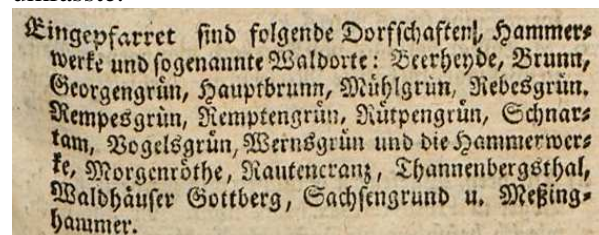 Eingepfarret sind folgende Dorfschaften, Hammer-
werke und sogenannte Waldorte: Beerheyde, Brunn,
Georgengrün, Hauptbrunn, Mühlgrün, Rebesgrün.
Rempesgrün, Remptengrün, Rütpengrün, Schnar-
tam, Vogelsgrün, Wernsgrün und die Hammerwer-
ke, Morgenröthe, Rautencranz, Thannenbergsthal,
Waldhäuser Gottberg, Sachsengrund u. Meßing-
hammer.